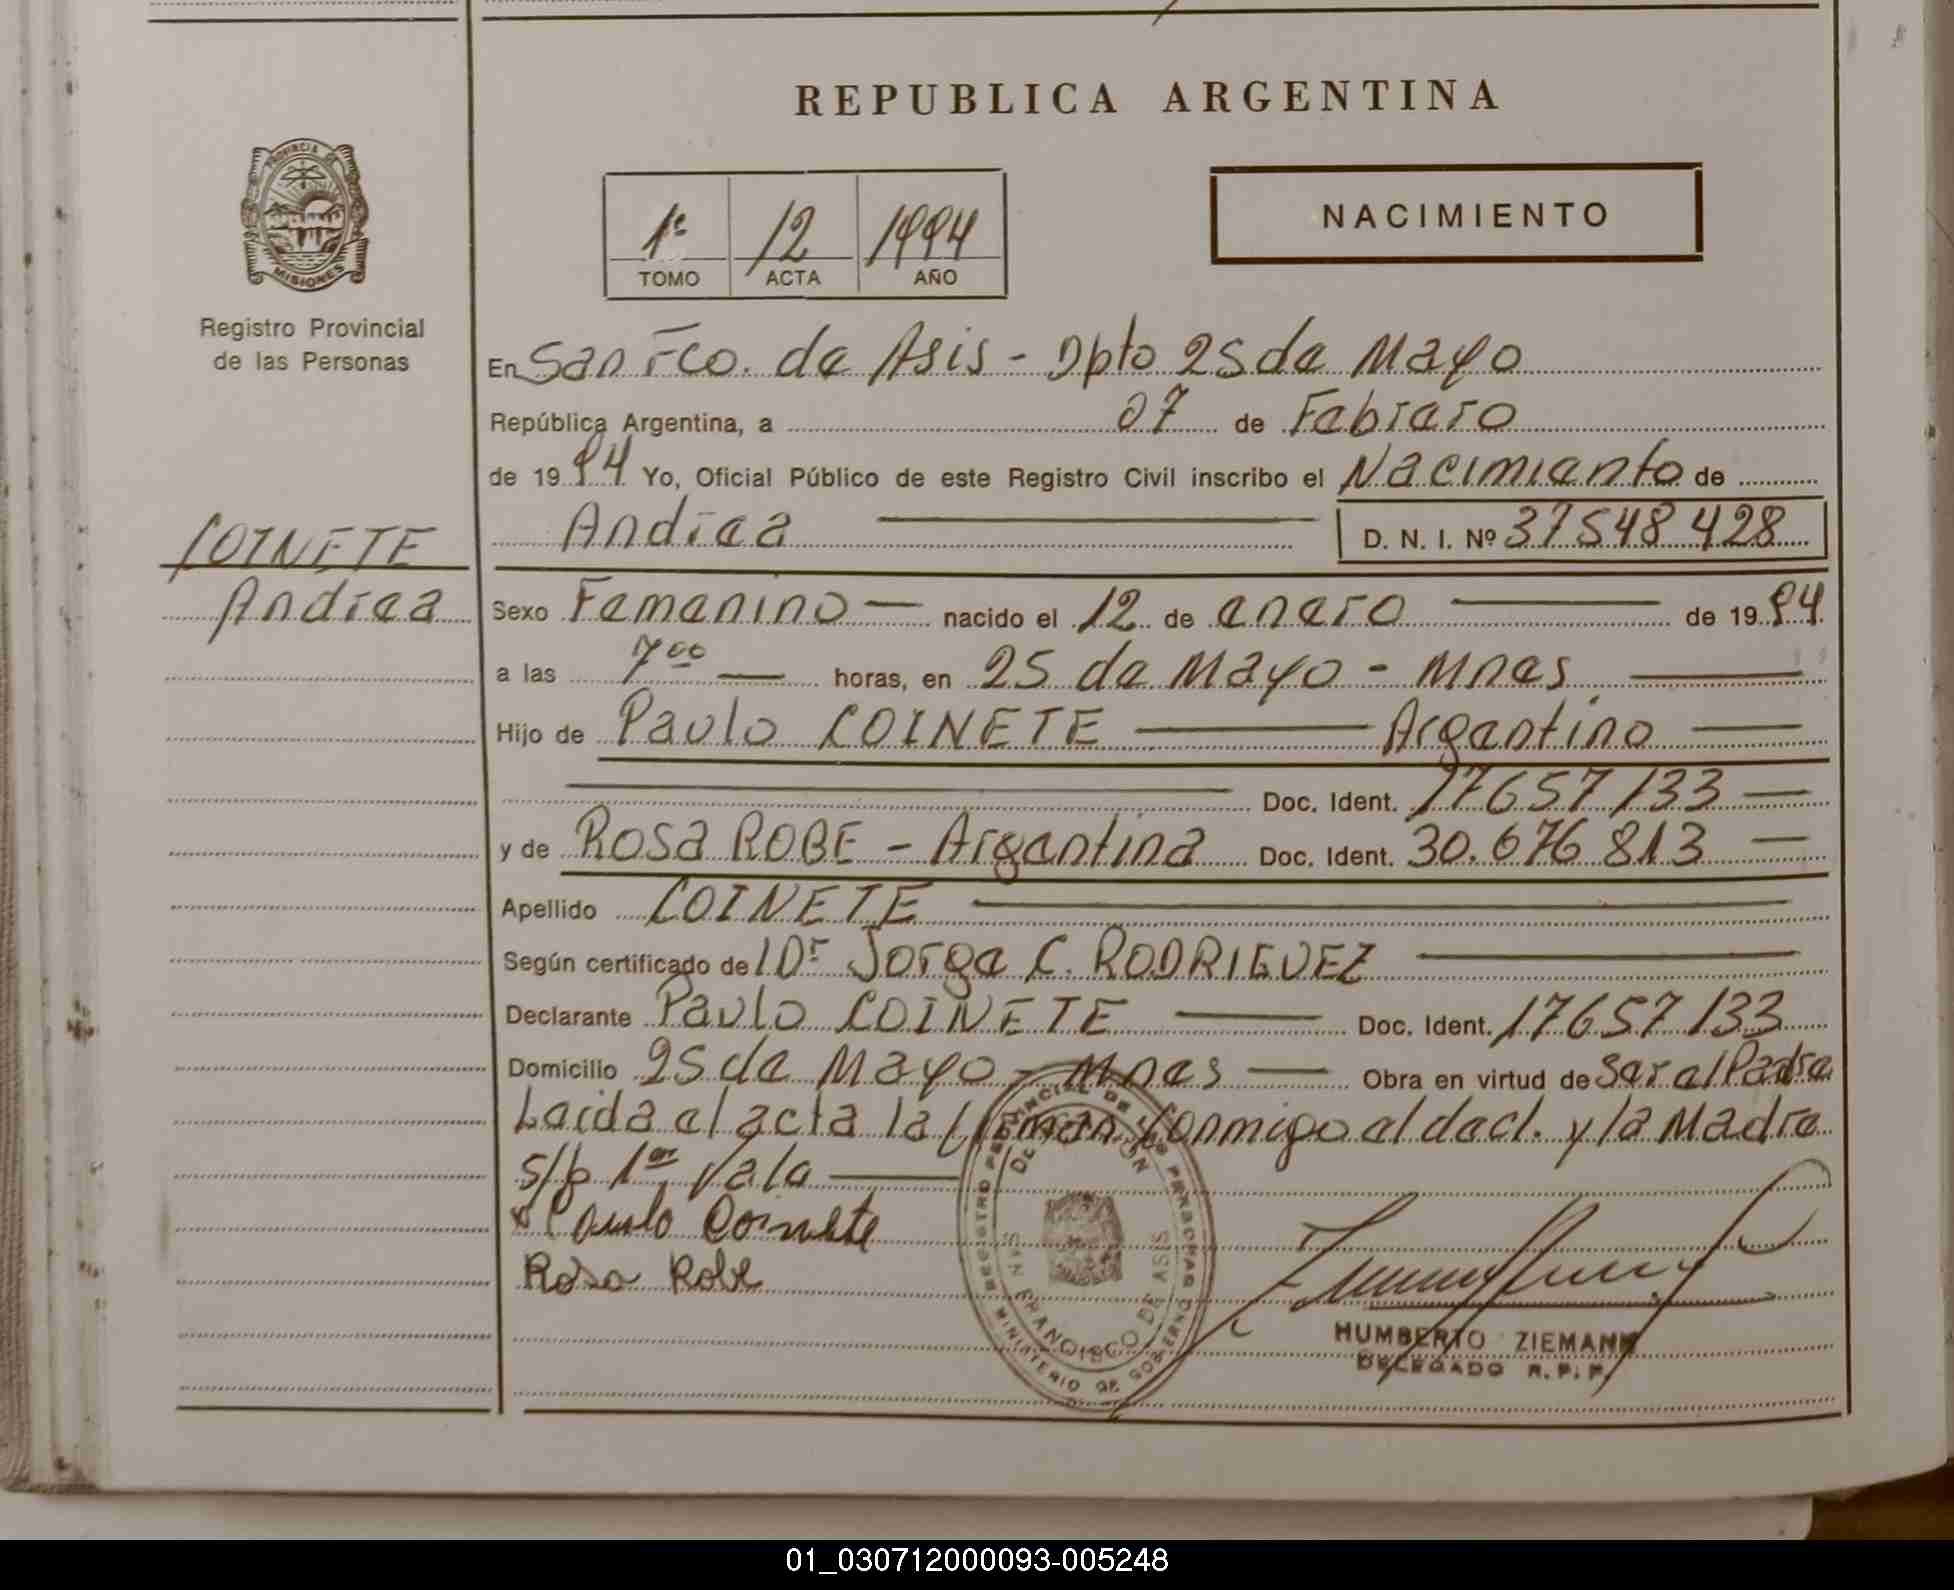 REPUBLICA ARGENTINA
PROVINCIA DE
MISIONES
Registro Provincial
de las Personas
1º 12 1994
TOMO ACTA AÑO
NACIMIENTO
En San Fco. de Asis - Dpto 25 de Mayo
República Argentina, a 07 de Febrero
de 19 94 Yo, Oficial Público de este Registro Civil inscribo el Nacimiento de
Andrea D. N. I. Nº 37548428
COINETE
Andrea
Sexo Femenino — nacido el 12 de enero — de 19 94
a las 7 00 — horas, en 25 de Mayo - Mnes —
Hijo de Paulo COINETE — Argentino —
— Doc. Ident. 17657133 —
y de ROSA ROBE - Argentina Doc. Ident. 30.676 813 —
Apellido COINETE —
Según certificado del Dr Jorge C. RODRIGUEZ —
Declarante Paulo COINETE — Doc. Ident. 17657133
Domicilio 25 de Mayo - Mnes — Obra en virtud de Ser el Padre
Leida el acta la firman conmigo el decl. y la Madre
s/b 1er, Vale —
x Paulo Coinete
Rosa Robe
REGISTRO PROVINCIAL DE LAS PERSONAS
DELEGACION
SAN FRANCISCO DE ASIS
MINISTERIO DE GOBIERNO
HUMBERTO ZIEMANN
DELEGADO R. P. P.
01_030712000093-005248